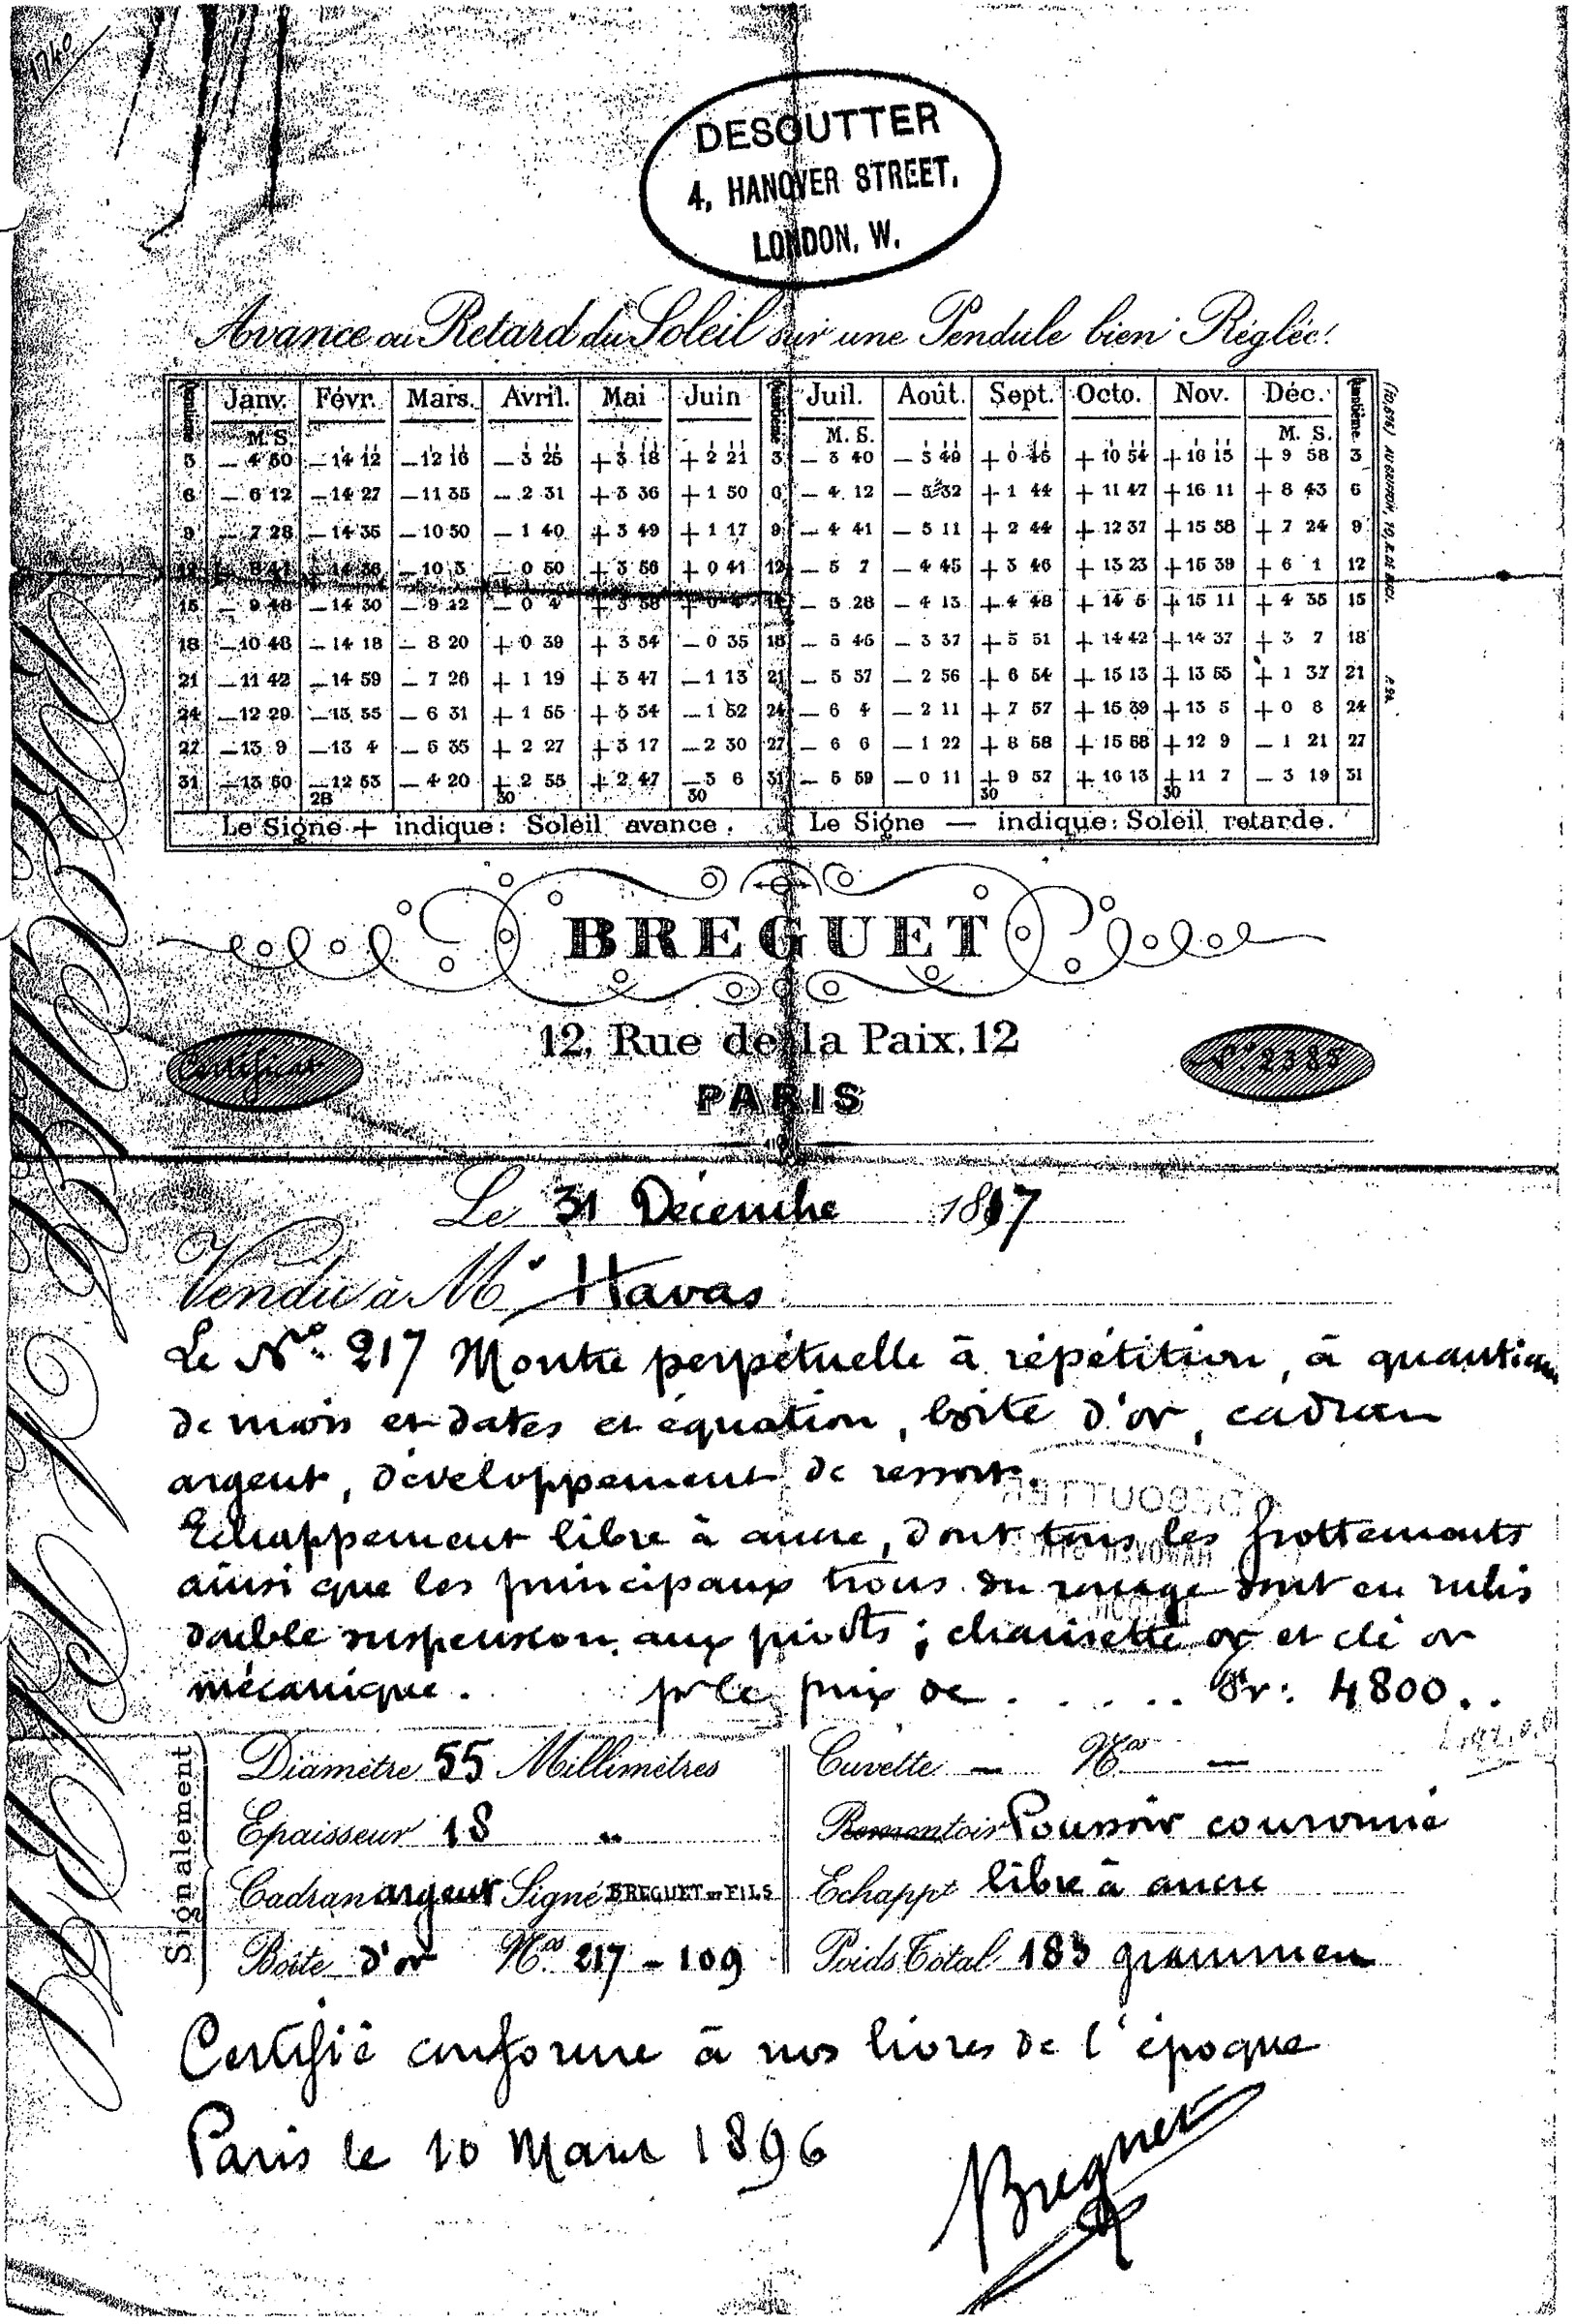 1740
DESOUTTER
4, HANOVER STREET,
LONDON. W.
Avance ou Retard du Soleil sur une Pendule bien Réglée!
Janv. Févr. Mars. Avril. Mai Juin Juil. Août. Sept. Octo. Nov. Déc. Quantième.
M. S. M. S. M. S.
3 — 4 50 — 14 12 — 12 16 — 3 25 + 3 18 + 2 21 3 — 3 40 — + 10 54 + 16 15 + 9 58 3
6 — 6 12 — 14 27 — 11 35 — 2 31 + 3 36 + 1 50 6 — 4 12 — 5 32 + 1 44 + 11 47 + 16 11 + 8 43 6
9 — 7 28 — 14 35 — 10 50 — 1 40 + 3 49 + 1 17 9 — 4 41 — 5 11 + 2 44 + 12 37 + 15 58 + 7 24 9
— 10 3 — 0 50 + 3 56 + 0 41 12 — 5 7 — 4 45 + 3 46 + 13 23 + 15 39 + 6 1 12
15 — 9 48 — 14 30 — 9 12 — 0 4 + 3 58 — 5 28 — 4 13 + 4 48 + 14 5 + 15 11 + 4 35 15
18 — 10 48 — 14 18 — 8 20 + 0 39 + 3 54 — 0 35 18 — 5 45 — 3 37 + 5 51 + 14 42 + 14 37 + 3 7 18
21 — 11 42 — 14 59 — 7 26 + 1 19 + 3 47 — 1 13 21 — 5 57 — 2 56 + 6 54 + 15 13 + 13 55 + 1 37 21
24 — 12 29 — 13 35 — 6 31 + 1 55 + 3 34 — 1 52 24 — 6 4 — 2 11 + 7 57 + 15 39 + 13 5 + 0 8 24
27 — 13 9 — 13 4 — 5 35 + 2 27 + 3 17 — 2 30 27 — 6 6 — 1 22 + 8 58 + 15 58 + 12 9 — 1 21 27
31 — 13 50 — 12 53 — 4 20 + 2 55 + 2 47 — 3 6 31 — 5 59 — 0 11 + 9 57 + 16 13 + 11 7 — 3 19 31
28 30 30 30 30
Le Signe + indique: Soleil avance. Le Signe — indique: Soleil retarde.
BREGUET
12, Rue de la Paix, 12
PARIS
Certificat
No 2385
Le 31 Décembre 1817
Vendu à Mr Havas
Le No 217 Montre perpétuelle à répétition, à quantième
de mois et dates et équation, boîte d'or, cadran
argent, développement de ressort.
Echappement libre à ancre, dont tous les frottements
ainsi que les principaux trous du rouage sont en rubis
double suspension aux pivots; chainette or et clé or
mécanique. pr le prix de . . . . . Fr: 4800..
Signalement
Diamètre 55 Millimètres
Epaisseur 18 "
Cadran argent Signé BREGUET ET FILS
Boîte d'or Nos 217 - 109
Cuvette — Nos —
Remontoir Poussoir couronne
Echappt libre à ancre
Poids Total 183 grammes
Certifié conforme à nos livres de l'époque
Paris le 10 Mars 1896
Breguet